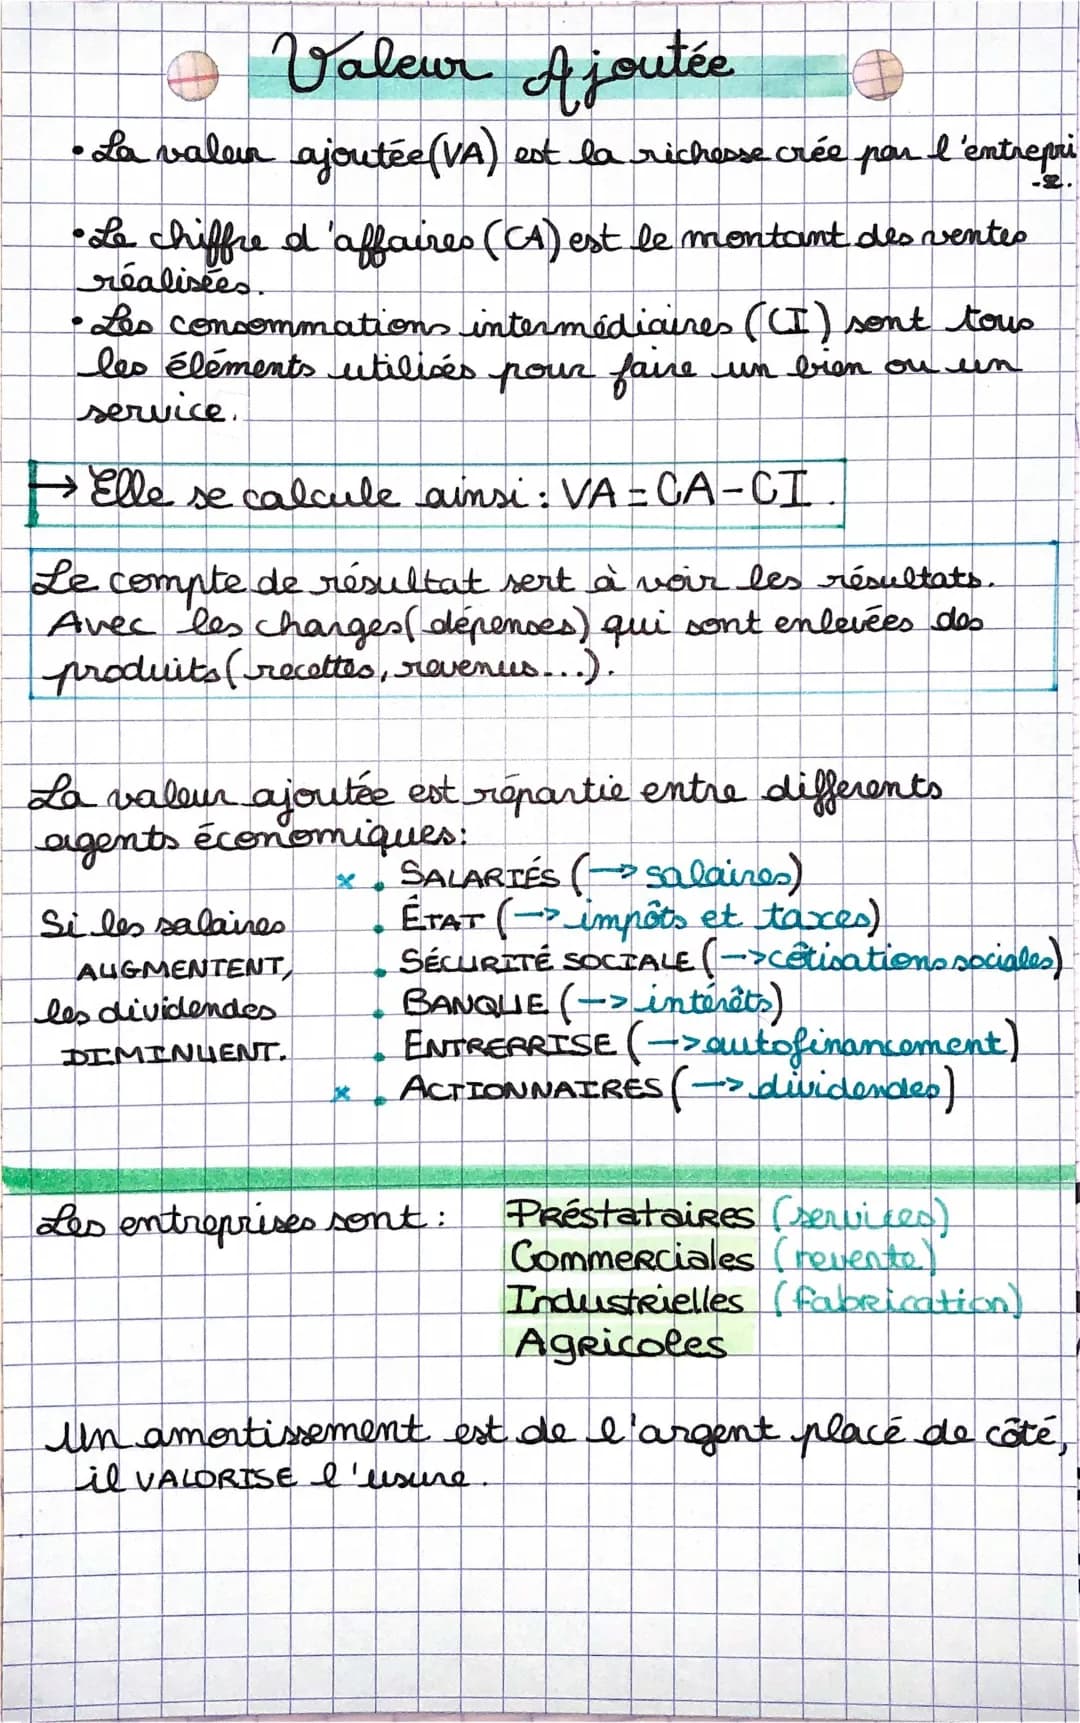 Valeur Ajoutée
• La valeur ajoutée (VA) est la richesse crée par l'entrepri
-se.
• Le chiffre d'affaires (CA) est le montant des ventes
réalisées.
• Les consommations intermédiaires (CI) sont tous
les éléments utilisés pour faire un bien ou un
service.
→ Elle se calcule ainsi : VA = CA - CI.
Le compte de résultat sert à voir les résultats.
Avec les charges (dépenses) qui sont enlevées des
produits (recettes, revenus...).
La valeur ajoutée est répartie entre differents
agents économiques :
x • SALARIÉS (→ salaires)
• ÉTAT (→ impôts et taxes)
• SÉCURITÉ SOCIALE (→ cotisations sociales)
• BANQUE (→ intérêts)
• ENTREPRISE (→ autofinancement)
x • ACTIONNAIRES (→ dividendes)
Si les salaires
AUGMENTENT,
les dividendes
DIMINUENT.
Les entreprises sont :
Préstataires (services)
Commerciales (revente)
Industrielles (fabrication)
Agricoles
Un amortissement est de l'argent placé de côté,
il VALORISE l'usure.